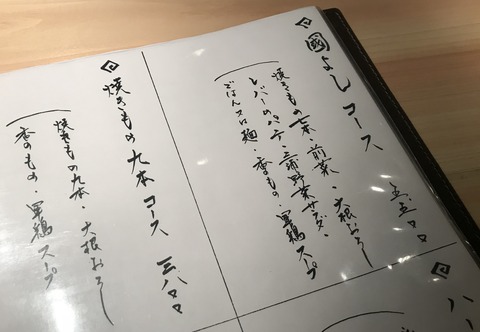 國よしコース
五、五〇〇
焼きもの七本・前菜・大根おろし
レバーのパテ・三浦野菜サラダ、
ごはんスロ麺・香のもの・軍鶏スープ
焼きもの九本コース 三、八〇〇
焼きもの九本・大根おろし
香のもの・軍鶏スープ
八、八